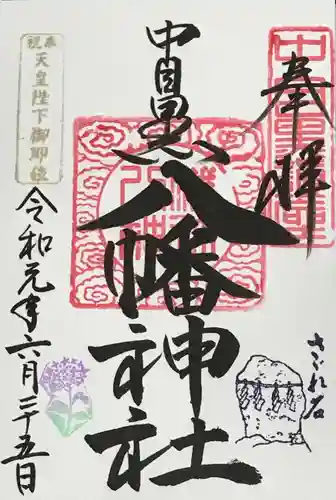 奉拝
中目黒
八幡神社
奉祝
天皇陛下御即位
令和元年六月二十五日
さゞれ石